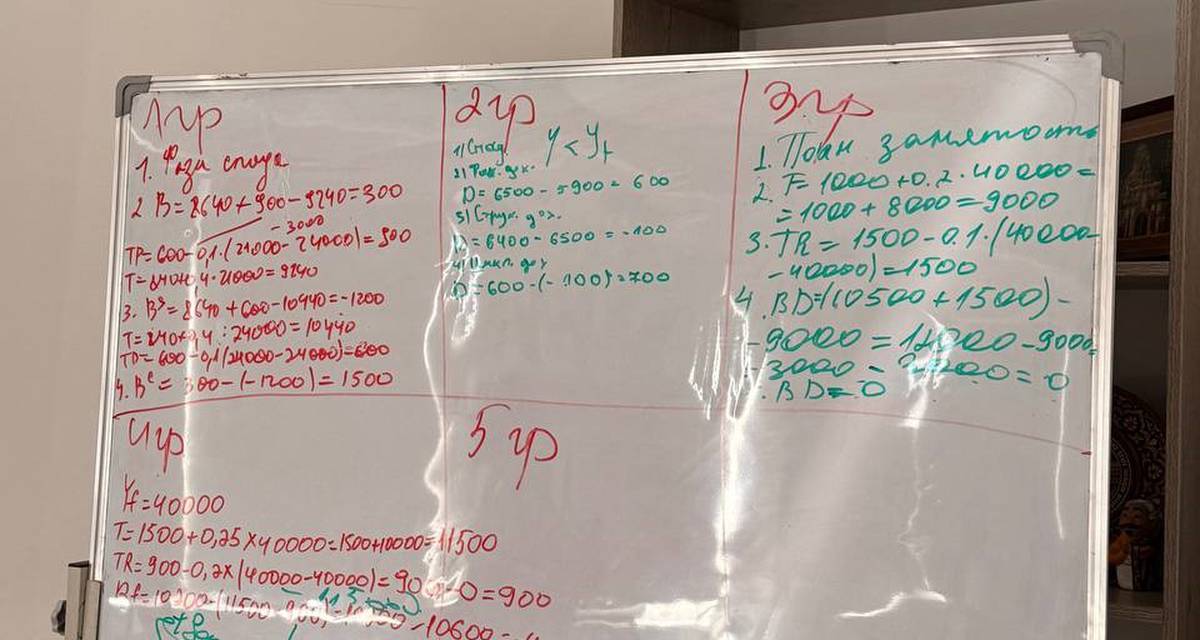 1гр
1. Фаза спада
2 B = 8640 + 900 - 9240 = 300
- 3000
TR = 600 - 0,1 · (21000 - 24000) = 900
T = 840 + 0,4 · 21000 = 9240
3. B = 8640 + 600 - 10440 = -1200
T = 840 + 0,4 · 24000 = 10440
TR = 600 - 0,1 (24000 - 24000) = 600
4. B = 300 - (-1200) = 1500
2гр
1) Спад. Y < Yf
2) Факт. дех.
D = 6500 - 5900 = 600
3) Струк. дех.
D = 6400 - 6500 = -100
D = 600 - (-100) = 700
3гр
1. Полн занятость
2. T = 1000 + 0.2 · 40000 =
= 1000 + 8000 = 9000
3. TR = 1500 - 0.1 · (40000 -
- 40000) = 1500
4. BD = (10500 + 1500) -
- 9000 = 12000 - 9000 =
BD = 0
4гр
Yf = 40000
T = 1500 + 0,25 × 40000 = 1500 + 10000 = 11500
TR = 900 - 0,2 × (40000 - 40000) = 900 - 0 = 900
5гр